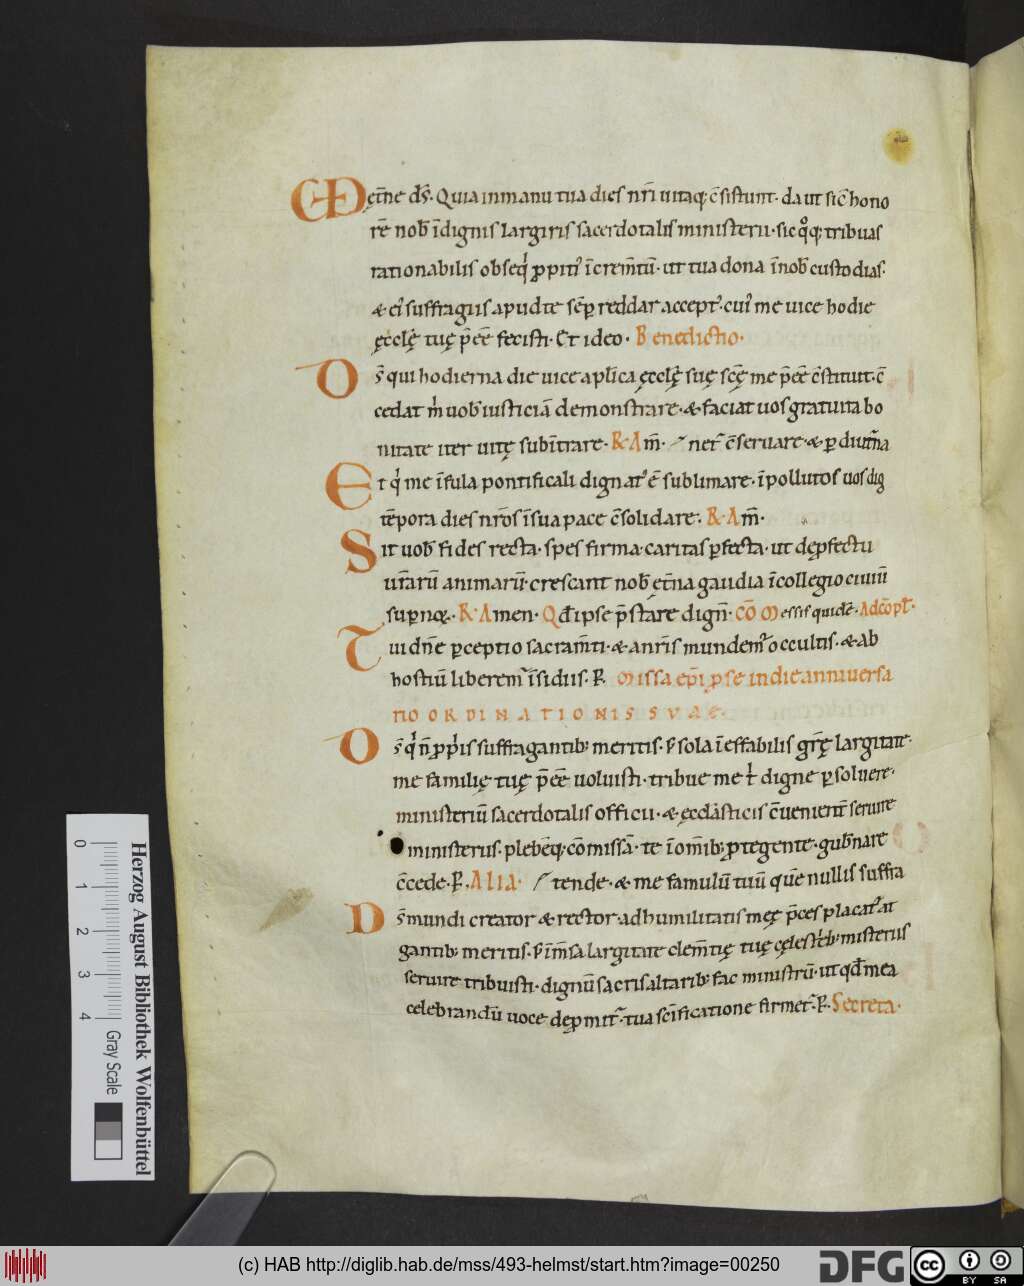 ęt̄ne ds̄. Quia inmanu tua dies nr̄i uitaq; c̄sistunt. da ut sic̄ hono
rē nob̄ īdignis largiris sacerdotalis ministerii. sic q̊q; tribuas
rationabilis obseq̍ ꝓpiti᾽ īcrem̄tū. ut tua dona īnob̄ custodias.
& ei᾽ suffragiis apud te sēꝑ reddar accept᾽. cui᾽ me uice hodie
ęcclę̄ tuę p̄eē fecisti. Et ideo. Benedictio.
Ds̄ qui hodierna die uice apl̄ica ęcclę̄ suę sc̄ę me p̄eē c̄stituit. c̄
cedat m̍ uob̄ iusticiā demonstrare. & faciat uos gratuita bo
nitate iter uitę subīt̄rare. R Am̄. net᾽ c̄seruare. & ꝑ diut̄na
Et q̍ me īfula pontificali dignat᾽ ē sublimare. īpollutos uos dig
tēpora dies nr̄os īsua pace c̄solidare. R Am̄.
Sit uob̄ fides recta. spes firma. caritas ꝑfecta. ut deꝓfectu
ur̄arū animarū. crescant nob̄ ęt̄na gaudia īcollegio ciuiū
suꝑnoꝝ. R Amen. Qđ ipse p̄stare dign̄. Cō Messis quidē. Adcōpl̄.
Tui dn̄e ꝑceptio sacram̄ti. & anr̄is mundem᾽ occultis. & ab
hostiū liberem᾽ īsidiis. P. Missa ep̄i ꝓ se indie anniuersa
rio ORDINATIONIS SVAE.
Ds̄ q̍ n̄ ꝓpriis suffragantib; meritis. s; sola īeffabilis gr̄ę largitate.
me familię tuę p̄eē uoluisti. tribue me t̍ digne ꝑsoluere.
ministeriū sacerdotalis officii. & ęccl̄asticis c̄uenient̄ seruire
ministeriis. plebēq; cōmissā. te īom̄ib; ꝓtegente. gub̄nare
c̄cede. P. Alia. tende. & me famulū tuū quē nullis suffra
Ds̄ mundi creator & rector. ad humilitatis meę p̄ces placat᾽ at
gantib; meritis. s; im̄sa largitate clem̄tię tuę cęlestib; misteriis
seruire tribuisti. dignū sacris altarib; fac ministrū. ut qđ mea
celebrandū uoce deꝓmit᾽. tua sc̄ificatione firmet᾽. P. Secreta.
Herzog August Bibliothek Wolfenbüttel
Gray Scale
0 1 2 3 4
(c) HAB http://diglib.hab.de/mss/493-helmst/start.htm?image=00250
DFG
cc BY SA